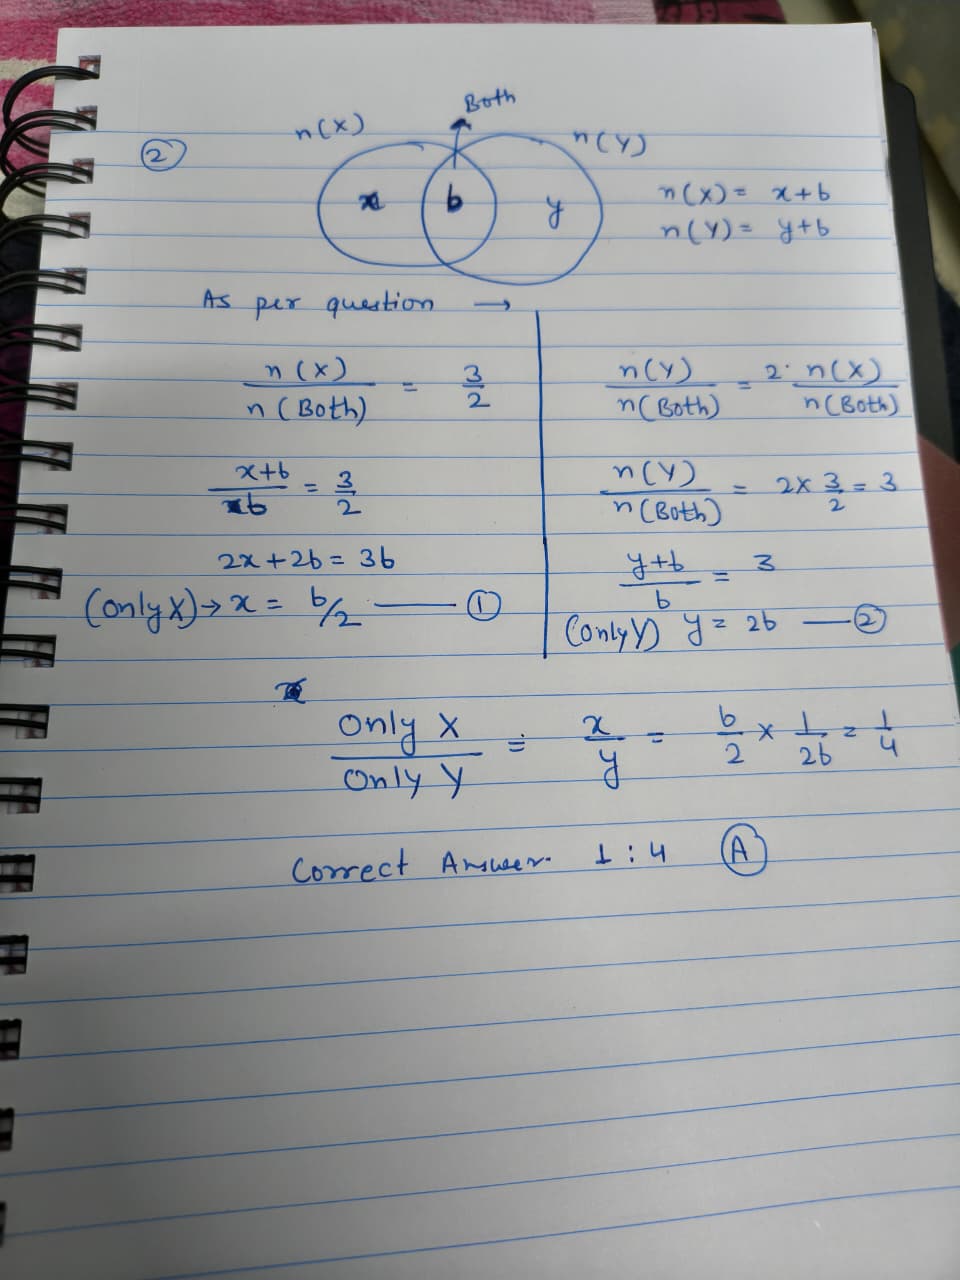 Both
n(X)
n(Y)
②
x b y
n(X) = x+b
n(Y) = y+b
As per question →
n(X)/n(Both) = 3/2
x+b/b = 3/2
2x+2b = 3b
(Only X)→ x = b/2 —— ①
n(Y)/n(Both) = 2· n(X)/n(Both)
n(Y)/n(Both) = 2× 3/2 = 3
y+b/b = 3
(Only Y) y = 2b —— ②
Only X/Only Y = x/y = b/2 × 1/2b = 1/4
Correct Answer. 1 : 4 Ⓐ